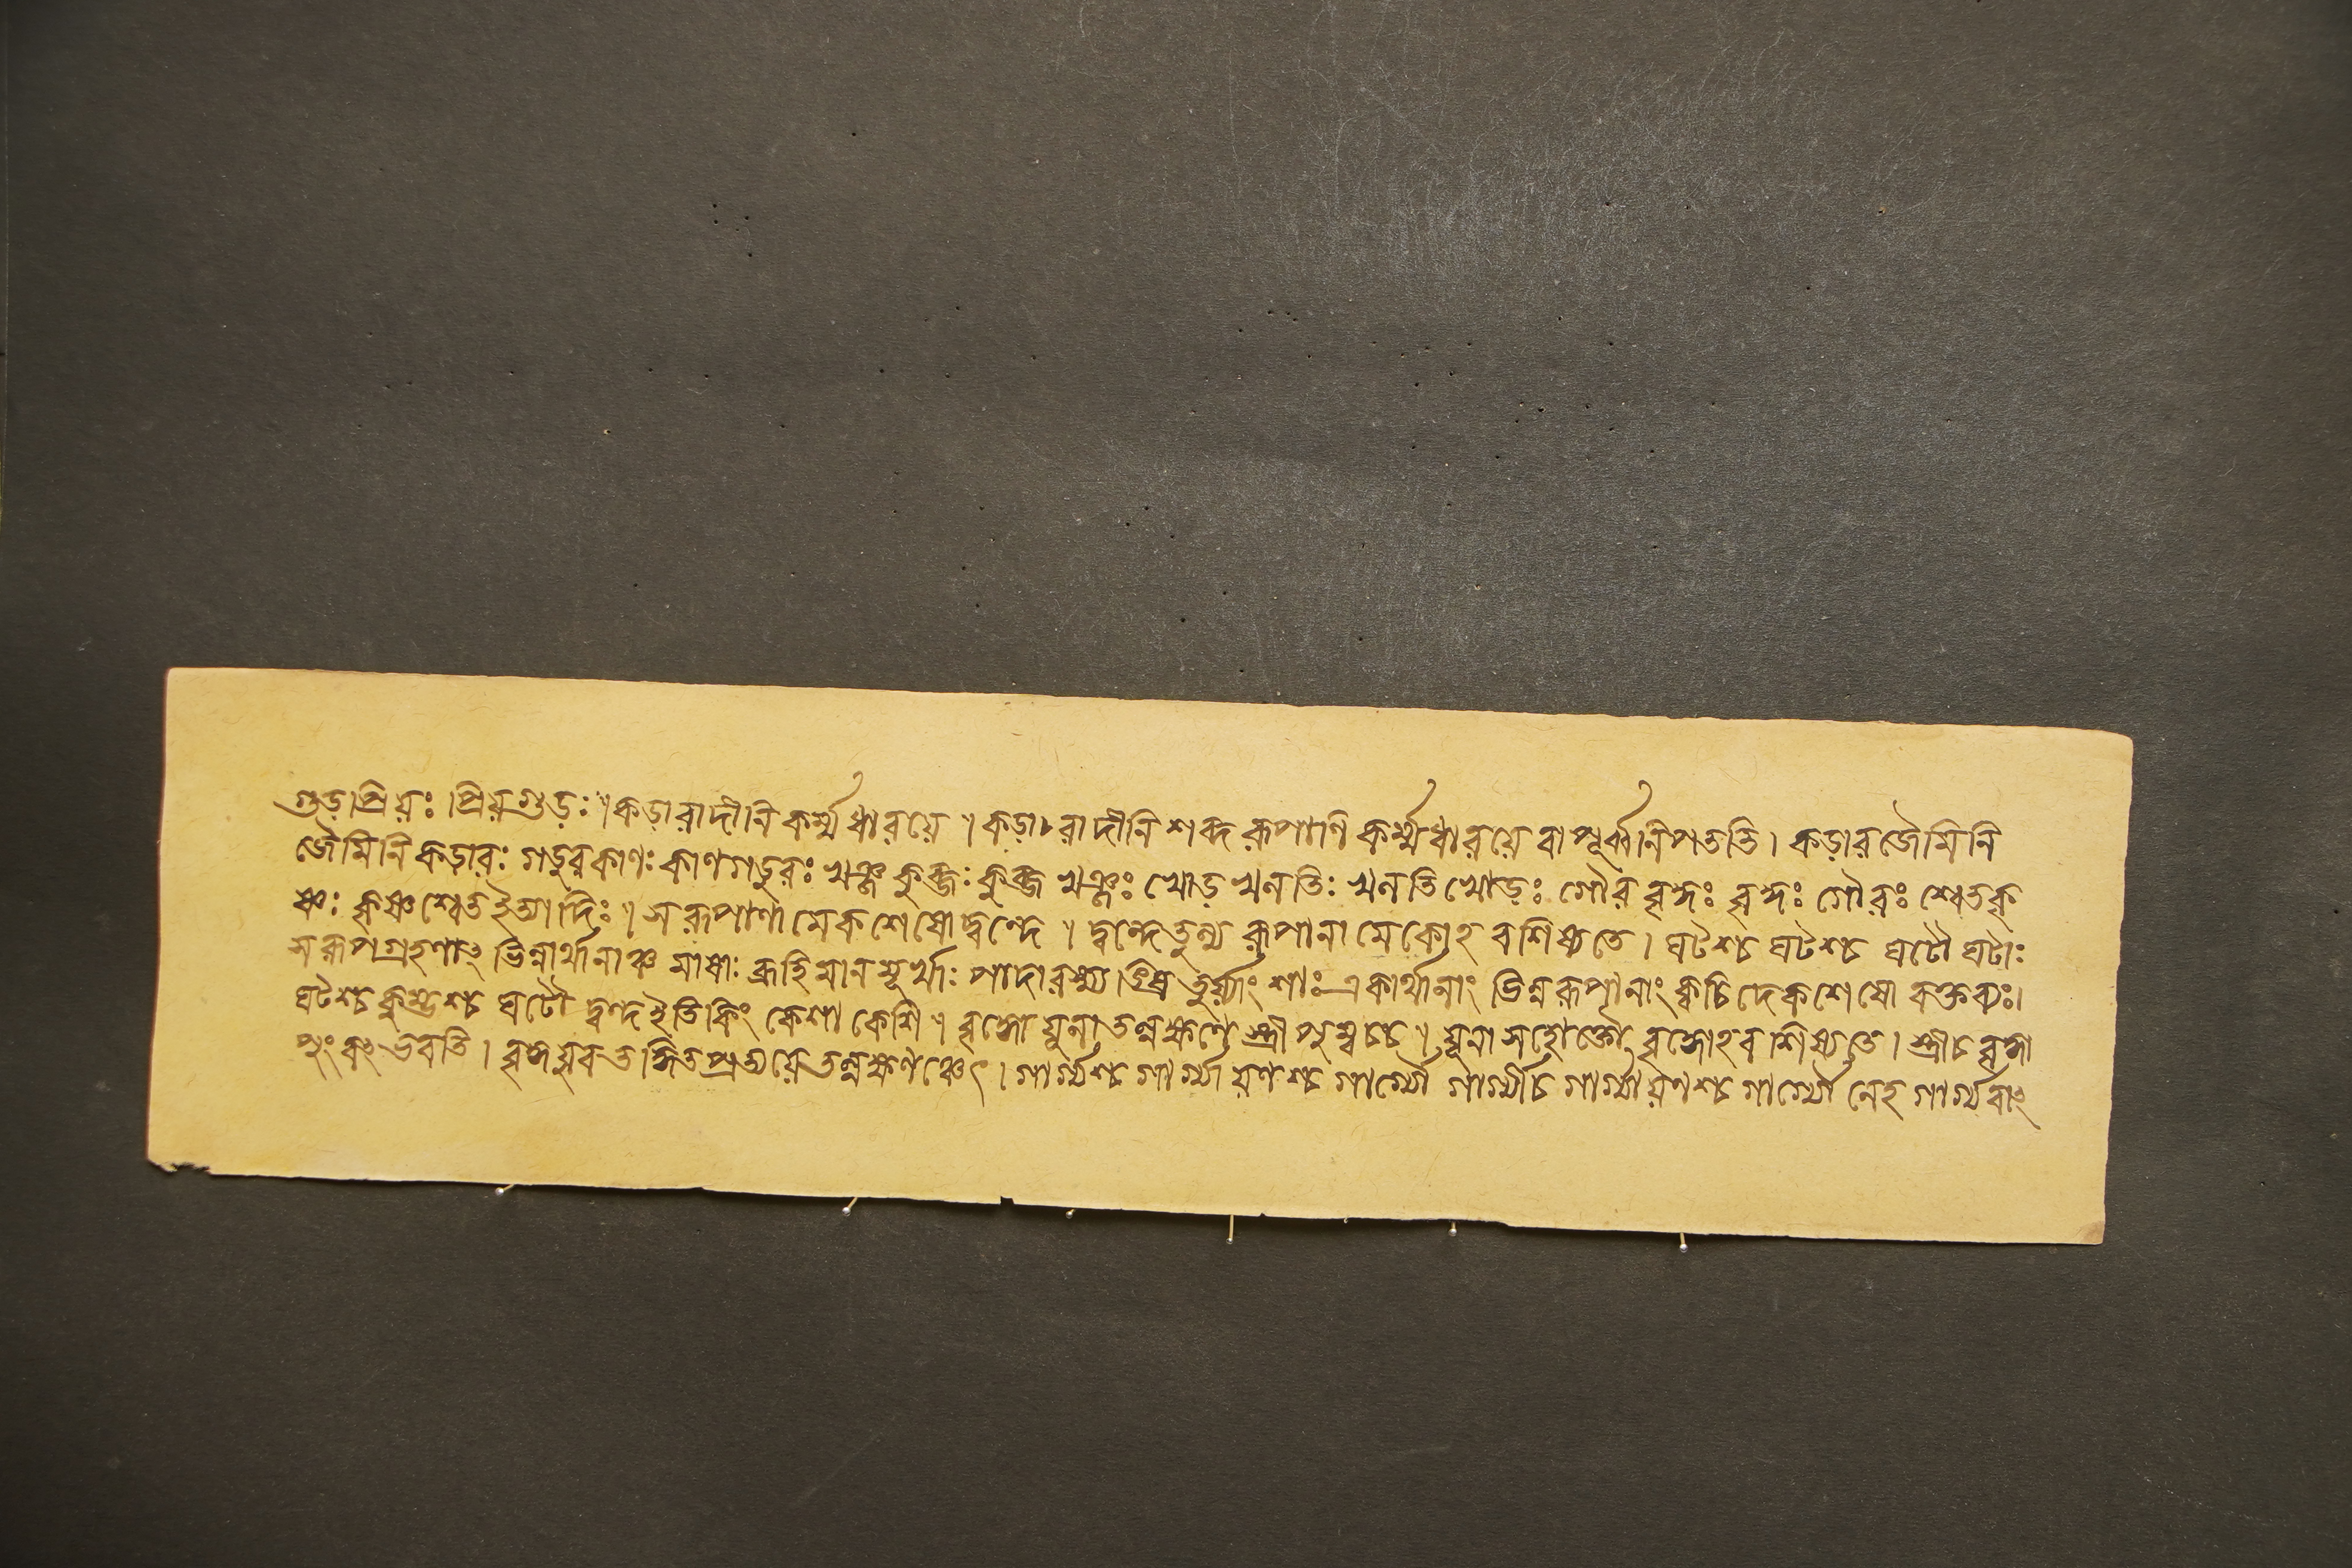 গুড়প্রিয়ঃ প্রিয়গুড়ঃ ॥ কড়ারাদীনি কর্ম্মধারয়ে ॥ কড়ারাদীনি শব্দরূপাণি কর্ম্মধারয়ে বা পূর্ব্বং নিপতন্তি । কড়ারজৈমিনি
জৈমিনি কড়ারঃ গড়ুরকাণঃ কাণগড়ুরঃ খঞ্জকুব্জঃ কুব্জখঞ্জঃ খোড়খলতিঃ খলতিখোড়ঃ গৌরবৃদ্ধঃ বৃদ্ধঃ গৌরঃ শ্বেতকৃ
ষ্ণঃ কৃষ্ণশ্বেত ইত্যাদিঃ ॥ সরূপাণামেকশেষো দ্বন্দে ॥ দ্বন্দে তুল্যরূপানামেকোঽবশিষ্যতে । ঘটশ্চ ঘটশ্চ ঘটৌ ঘটাঃ
সরূপগ্রহণাৎ ভিন্নার্থানাঞ্চ মাষাঃ ব্রীহিমানমূর্খাঃ পাদা রশ্ম্যঙ্ঘ্রিতুর্য্যাংশাঃ একার্থানাং ভিন্নরূপানাং ক্বচিদেকশেষো বক্তব্যঃ।
ঘটশ্চ কুম্ভশ্চ ঘটৌ দ্বন্দ ইতি কিং কেশাকেশি ॥ বৃদ্ধো যুনা তল্লক্ষণে স্ত্রী পুম্বচ্চ ॥ যুনা সহোক্তৌ বৃদ্ধোঽবশিষ্যতে । স্ত্রী চ বৃদ্ধা
পুংবৎ ভবতি । বৃদ্ধযুবতদ্ধিতপ্রত্যয়ে তল্লক্ষণঞ্চেৎ । গার্গ্যশ্চ গার্গ্যায়ণশ্চ গার্গ্যৌ গার্গ্যী চ গার্গ্যায়ণশ্চ গার্গ্যৌ নেহ গার্গ্যবাৎ